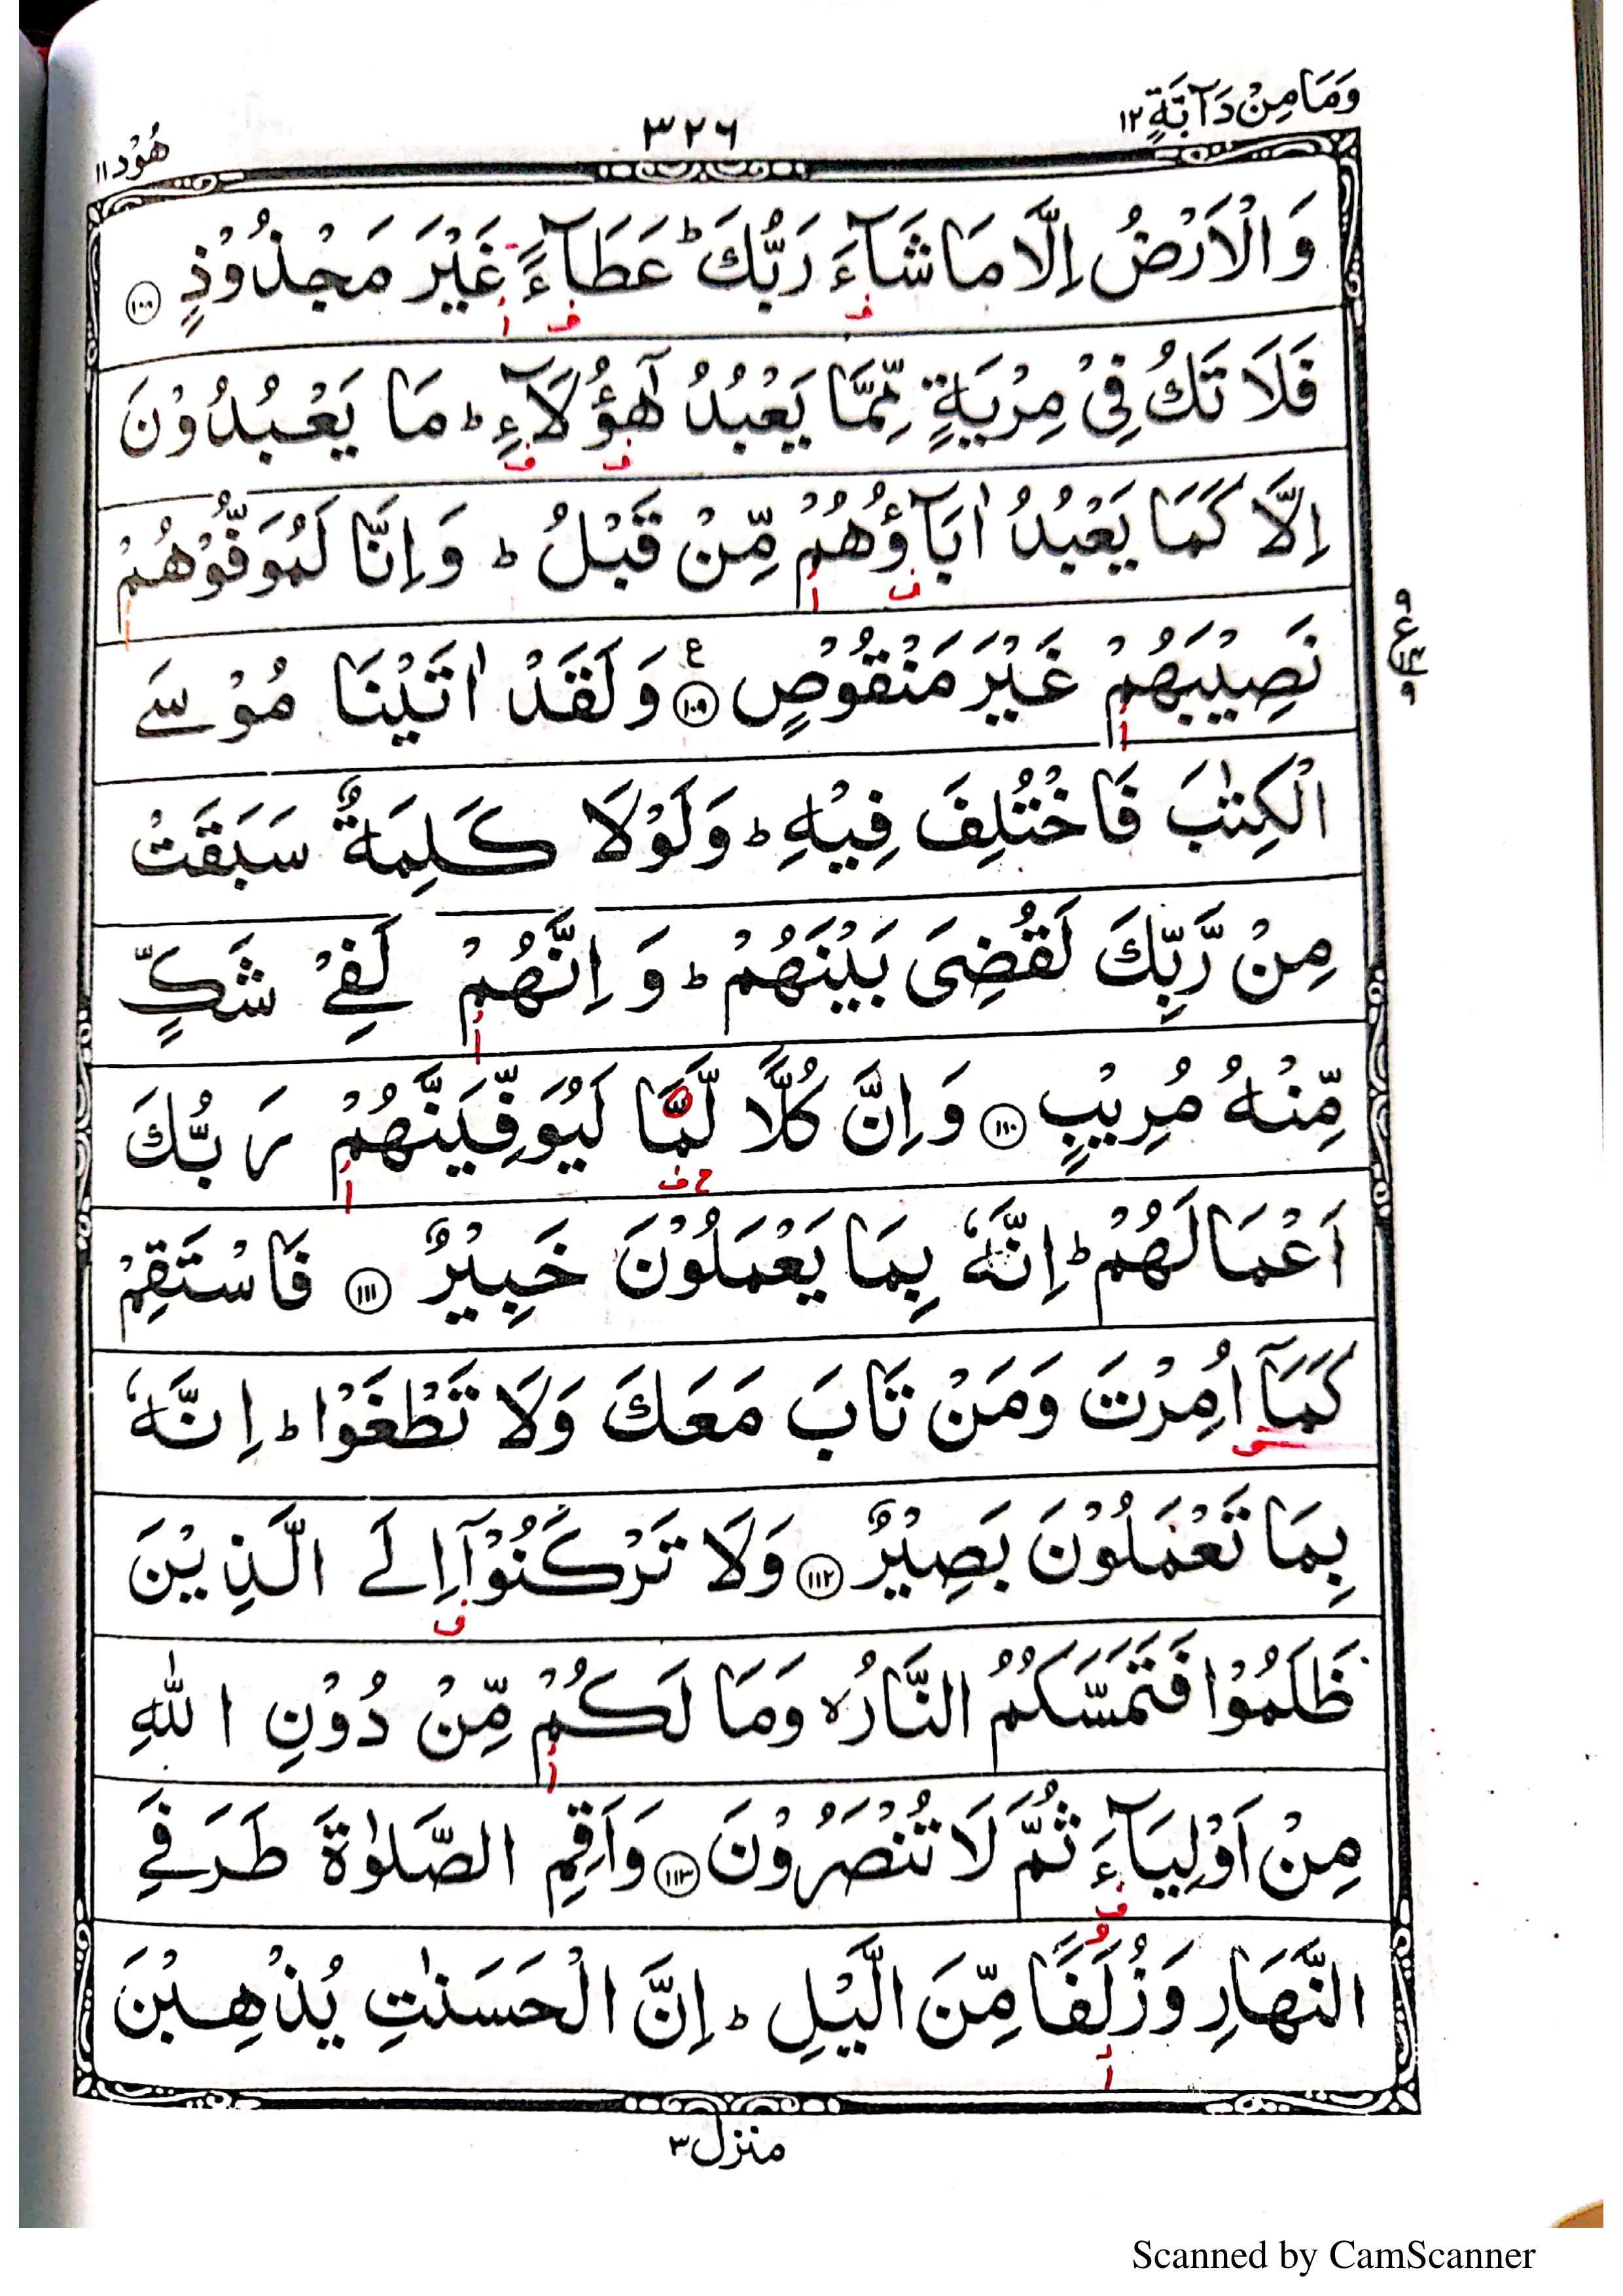 وَمَا مِنْ دَآبَّةٍ ١٢
٣٢٦
هُوْد ١١
وَالْاَرْضُ اِلَّا مَا شَآءَ رَبُّكَ ؕ عَطَآءً غَيْرَ مَجْذُوْذٍ ۝١٠٨
فَلَا تَكُ فِىْ مِرْيَةٍ مِّمَّا يَعْبُدُ هٰٓؤُلَآءِ ؕ مَا يَعْبُدُوْنَ
اِلَّا كَمَا يَعْبُدُ اٰبَآؤُهُمْ مِّنْ قَبْلُ ؕ وَاِنَّا لَمُوَفُّوْهُمْ
نَصِيْبَهُمْ غَيْرَ مَنْقُوْصٍ ۝١٠٩ ع وَلَقَدْ اٰتَيْنَا مُوْسَے
الْكِتٰبَ فَاخْتُلِفَ فِيْهِ ؕ وَلَوْلَا كَلِمَةٌ سَبَقَتْ
مِنْ رَّبِّكَ لَقُضِىَ بَيْنَهُمْ ؕ وَاِنَّهُمْ لَفِےْ شَكٍّ
مِّنْهُ مُرِيْبٍ ۝١١٠ وَاِنَّ كُلًّا لَّمَّا لَيُوَفِّيَنَّهُمْ رَبُّكَ
اَعْمَالَهُمْ ؕ اِنَّهٗ بِمَا يَعْمَلُوْنَ خَبِيْرٌ ۝١١١ فَاسْتَقِمْ
كَمَآ اُمِرْتَ وَمَنْ تَابَ مَعَكَ وَلَا تَطْغَوْا ؕ اِنَّهٗ
بِمَا تَعْمَلُوْنَ بَصِيْرٌ ۝١١٢ وَلَا تَرْكَنُوْٓا اِلَے الَّذِيْنَ
ظَلَمُوْا فَتَمَسَّكُمُ النَّارُ ۙ وَمَا لَكُمْ مِّنْ دُوْنِ اللّٰهِ
مِنْ اَوْلِيَآءَ ثُمَّ لَا تُنْصَرُوْنَ ۝١١٣ وَاَقِمِ الصَّلٰوةَ طَرَفَےِ
النَّهَارِ وَزُلَفًا مِّنَ الَّيْلِ ؕ اِنَّ الْحَسَنٰتِ يُذْهِبْنَ
منزل ٣
Scanned by CamScanner